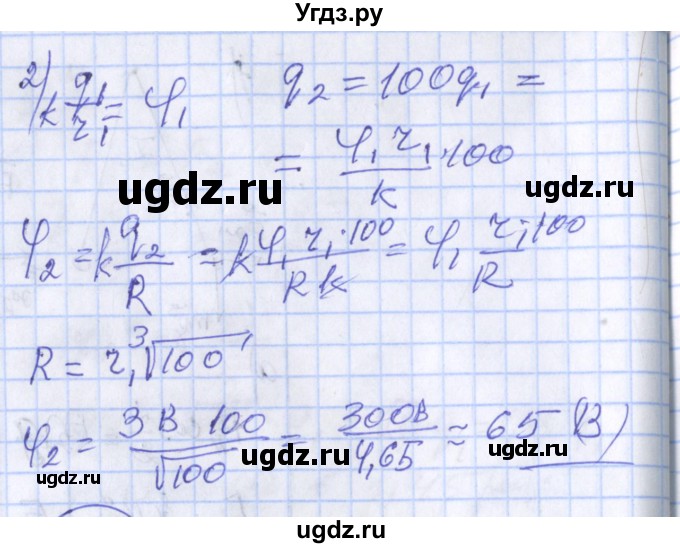 Угдз.ру
2) k q₁/r₁ = φ₁   q₂ = 100q₁ =
= φ₁ r₁ · 100 / k
ugdz.ru
ugdz.ru
φ₂ = k q₂/R = k φ₁ r₁ · 100 / R k = φ₁ r₁ · 100 / R
R = r₁ ³√100
φ₂ = 3 В 100 / √100 = 300В / 4,65 ≈ 65 (В)
ugdz.ru
ugdz.ru
ugdz.ru